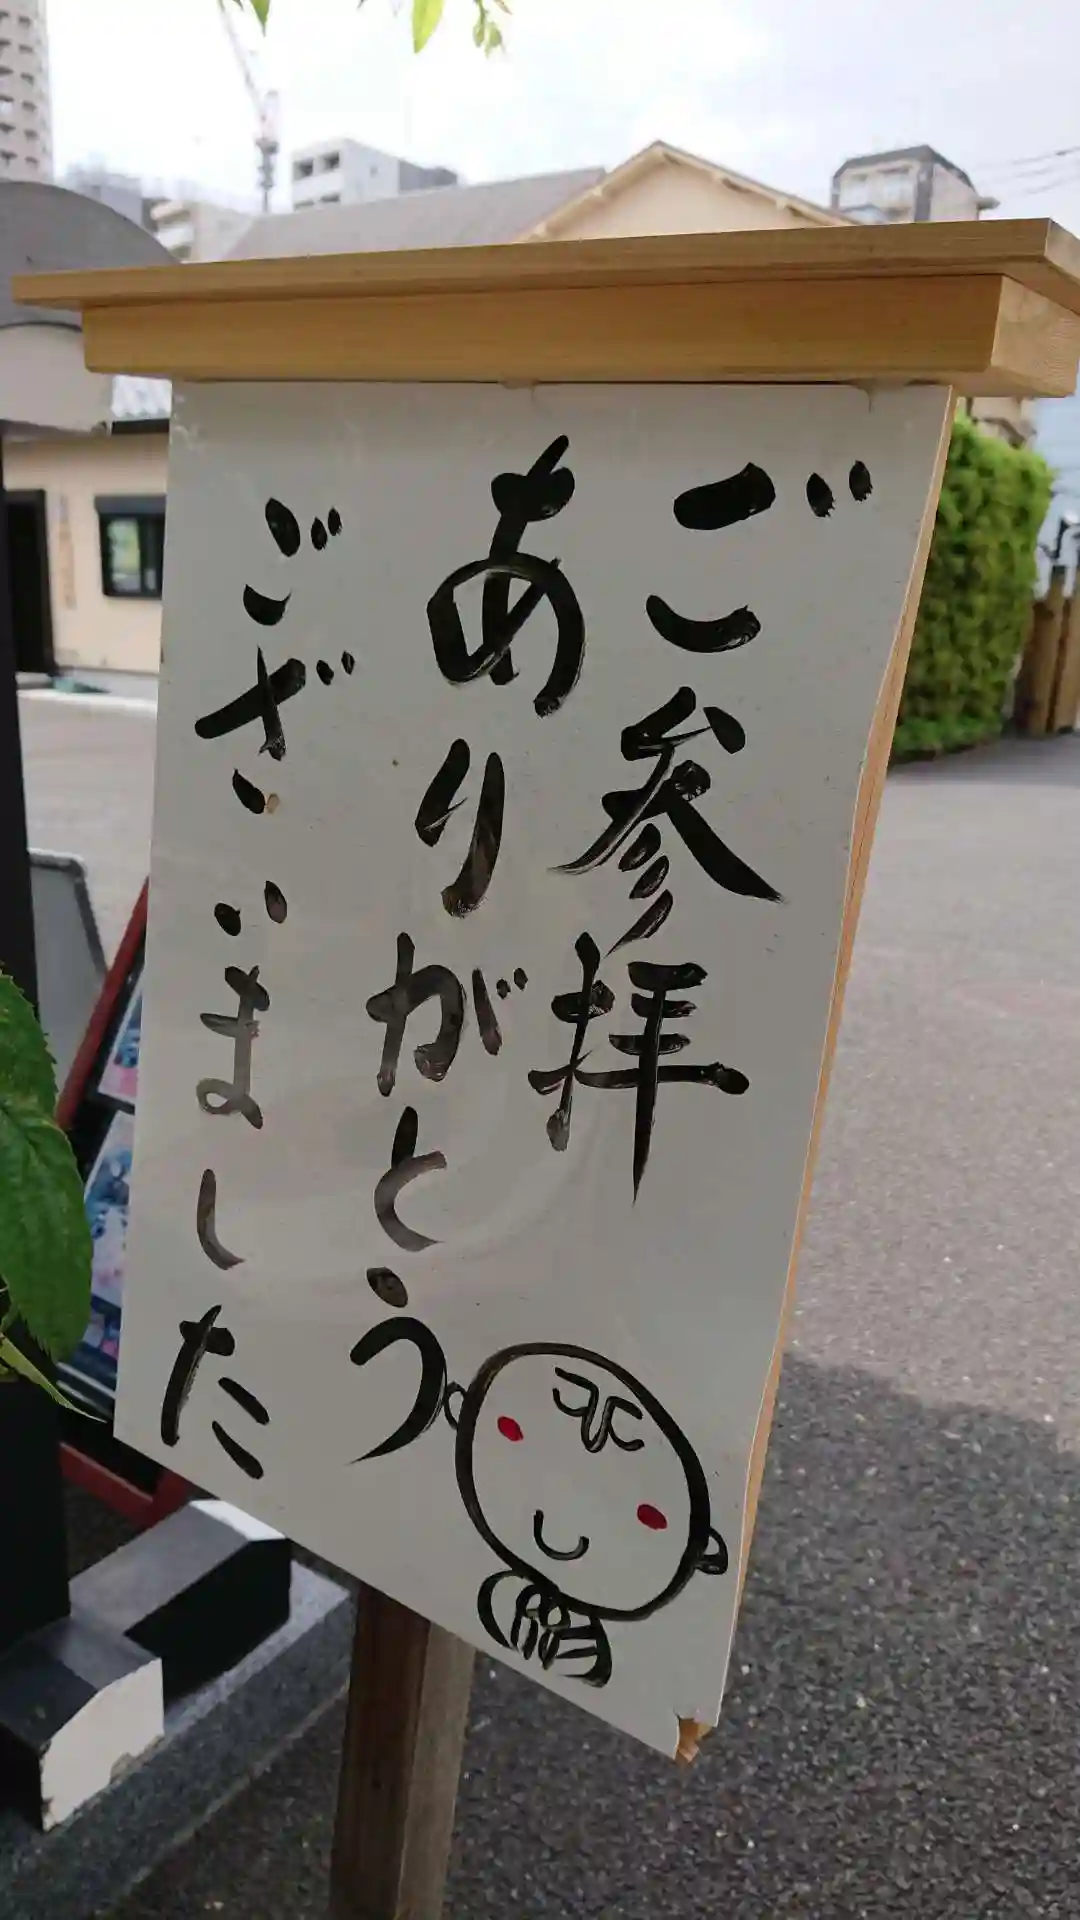 ご参拝
ありがとう
ございました